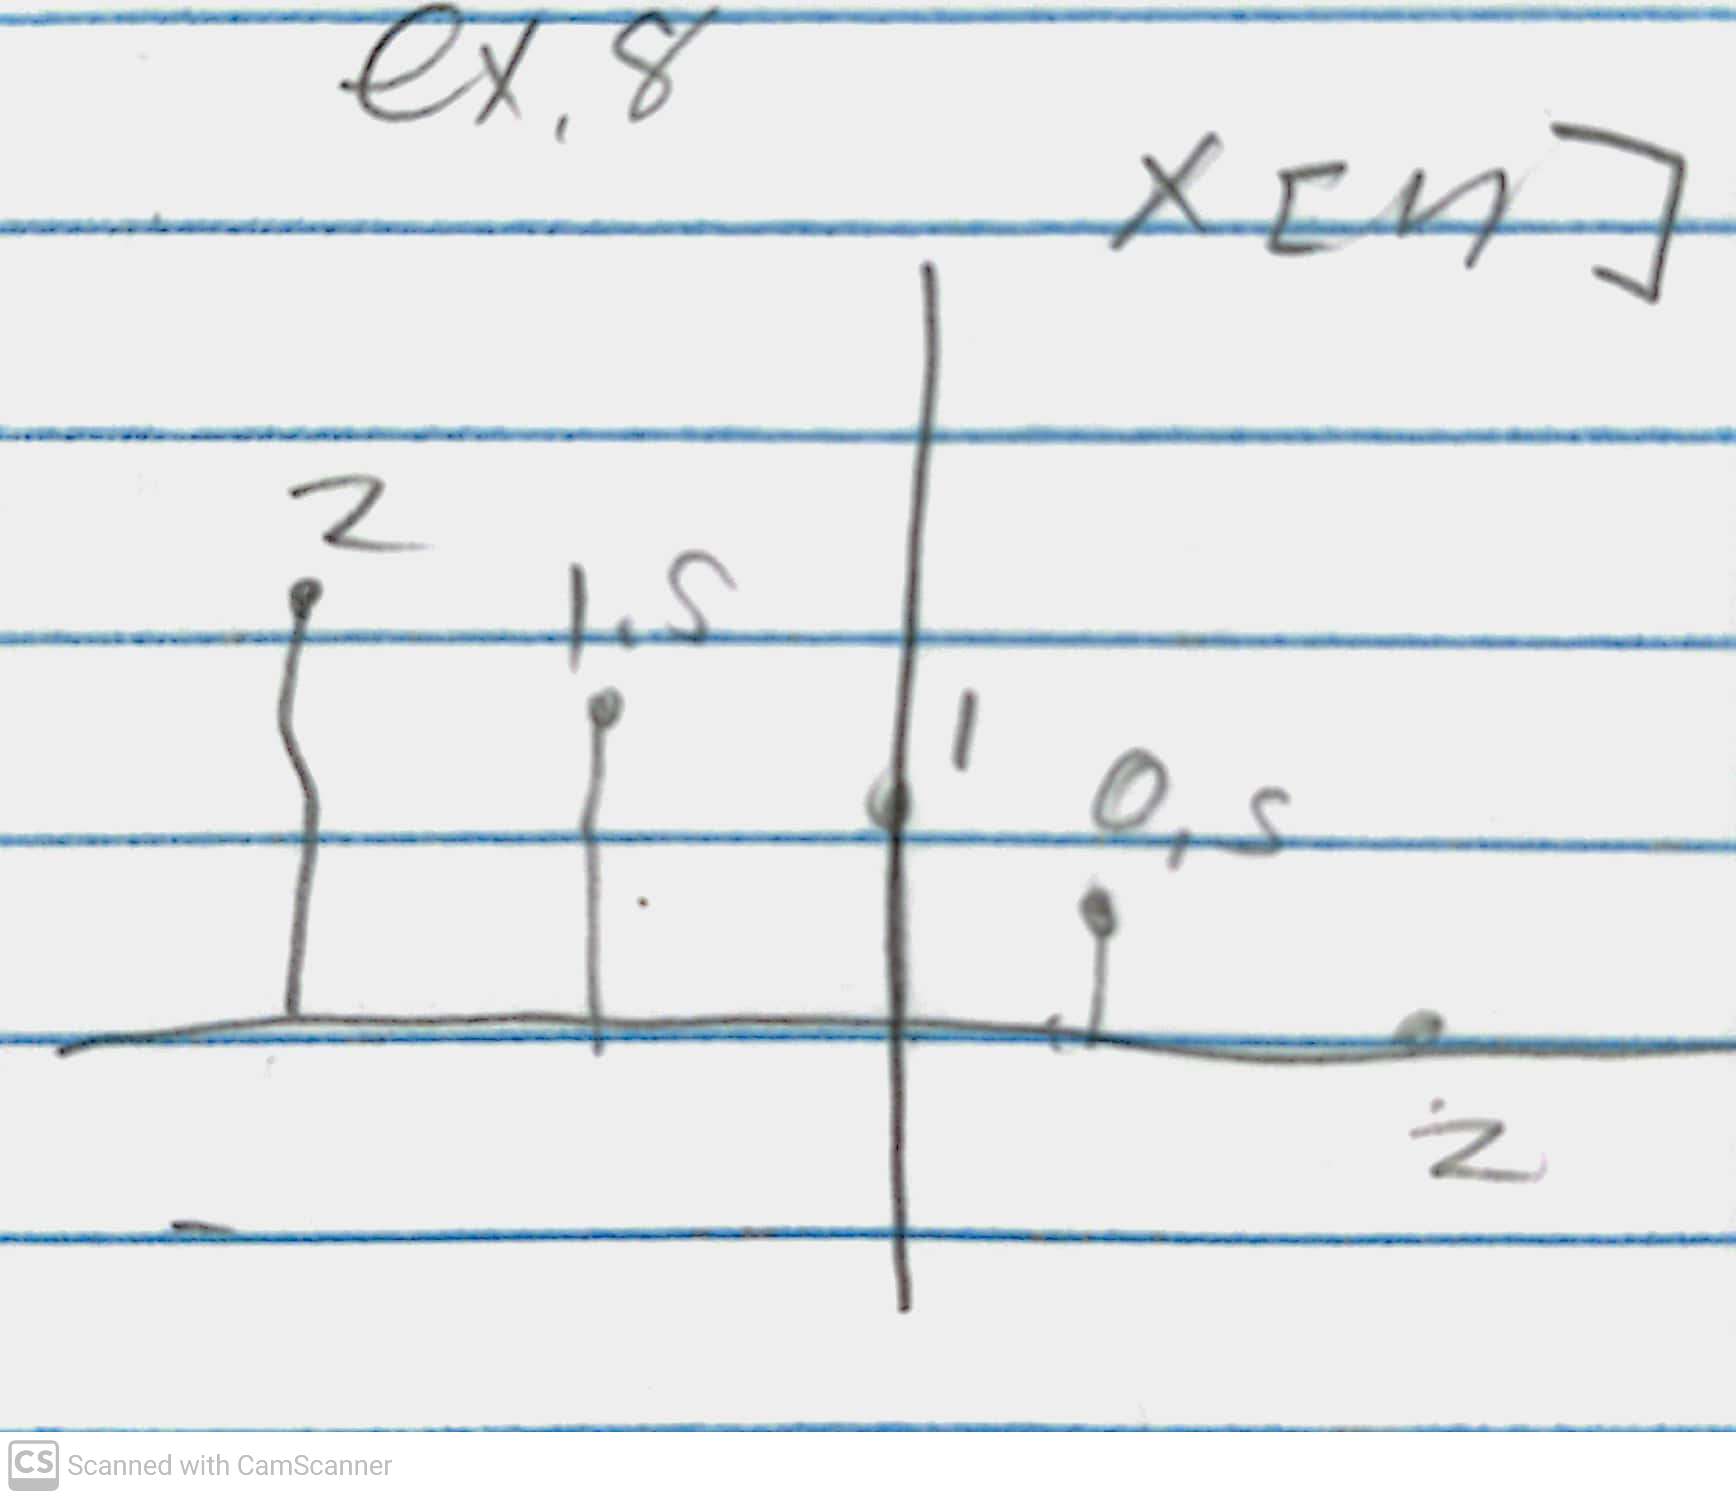 ex. 8
x[n]
2
1,5
1
0,5
2
CS Scanned with CamScanner